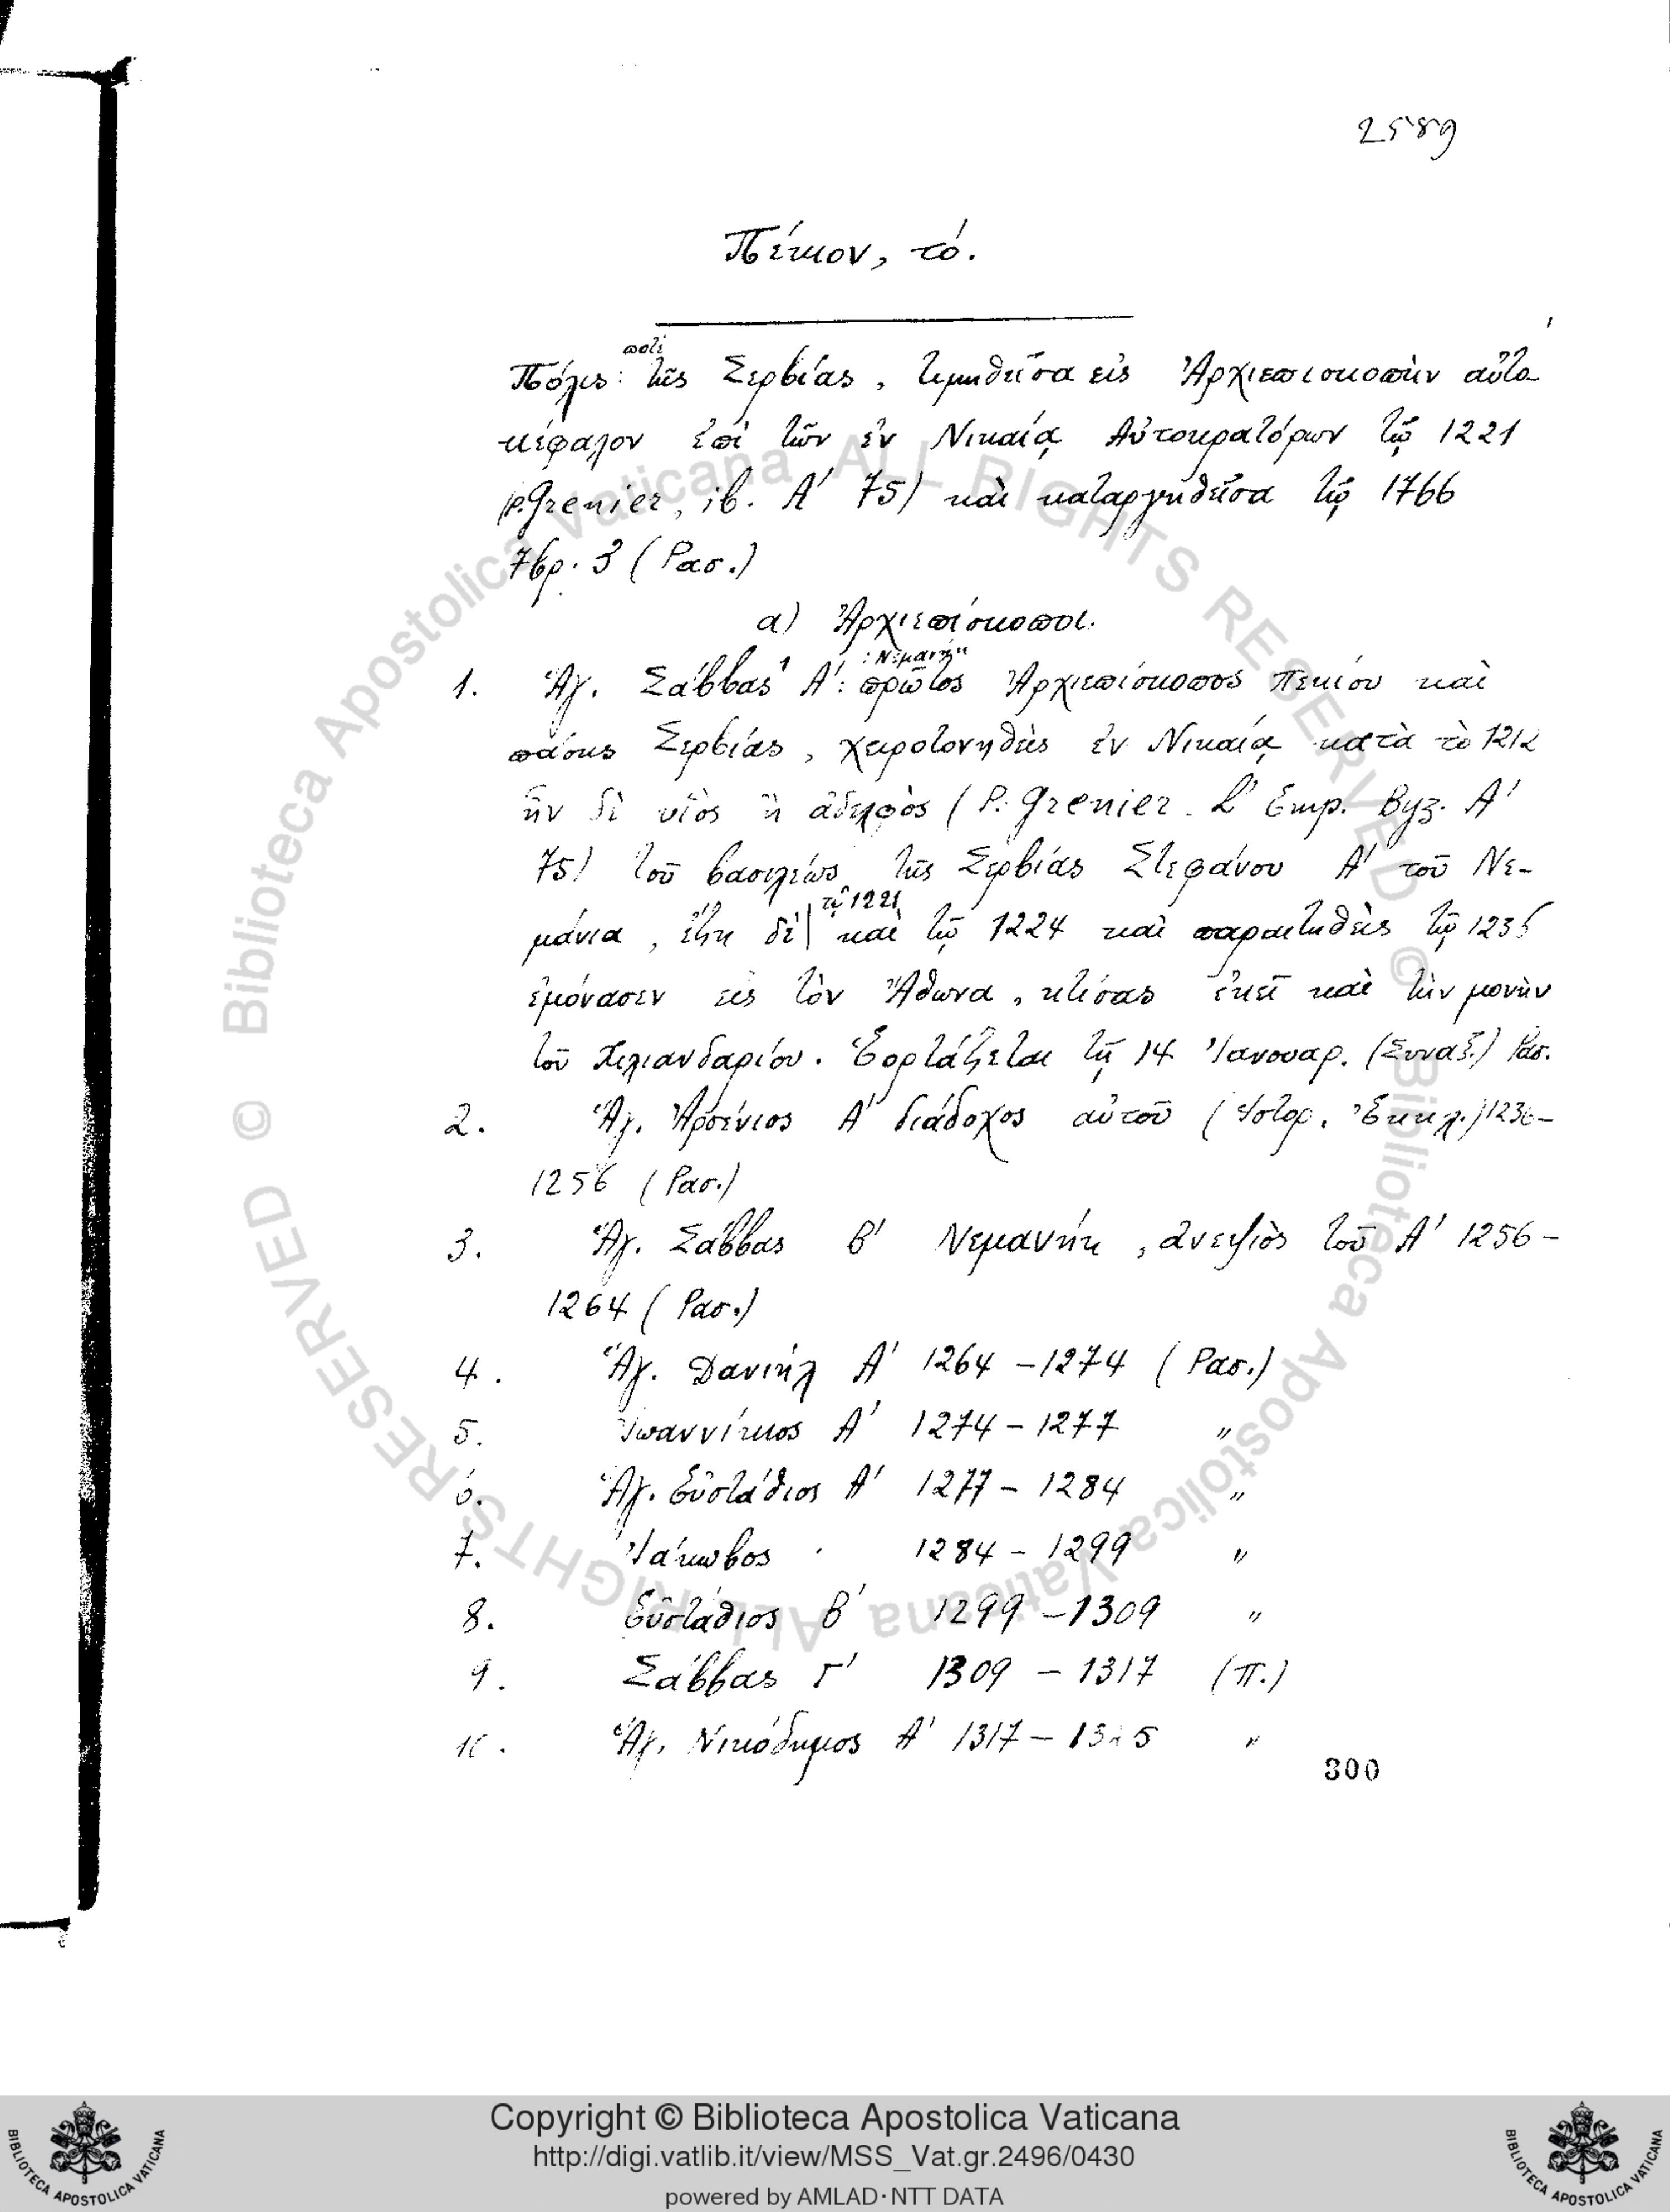 2589
Πέκιον, τό.
ποτὲ
Πόλις: τῆς Σερβίας, τιμηθεῖσα εἰς Ἀρχιεπισκοπὴν αὐτο-
κέφαλον ἐπὶ τῶν ἐν Νικαίᾳ Αὐτοκρατόρων τῷ 1221
(P. Grenier, ib. Α' 75) καὶ καταργηθεῖσα τῷ 1766
7βρ. 3 (Ρασ.)
α) Ἀρχιεπίσκοποι.
: Νεμανὴκ
1. Ἅγ. Σάββας Α': πρῶτος Ἀρχιεπίσκοπος Πεκίου καὶ
πάσης Σερβίας, χειροτονηθεὶς ἐν Νικαίᾳ κατὰ τὸ 1212
ἦν δὲ υἱὸς ἢ ἀδελφὸς (P. Grenier. L' Emp. Byz. Α'
75) τοῦ βασιλέως τῆς Σερβίας Στεφάνου Α' τοῦ Νε-
τῷ 1221
μάνια, ἔζη δὲ καὶ τῷ 1224 καὶ παραιτηθεὶς τῷ 1235
ἐμόνασεν εἰς τὸν Ἄθωνα, κτίσας ἐκεῖ καὶ τὴν μονὴν
τοῦ Χιλιανδαρίου. Ἑορτάζεται τῇ 14 Ἰανουαρ. (Συναξ.) Ρασ.
2. Ἅγ. Ἀρσένιος Α' διάδοχος αὐτοῦ (Ἱστορ. Ἐκκλ.) 1236-
1256 (Ρασ.)
3. Ἅγ. Σάββας Β' Νεμανὴκ, ἀνεψιὸς τοῦ Α' 1256-
1264 (Ρασ.)
4. Ἅγ. Δανιὴλ Α' 1264-1274 (Ρασ.)
5. Ἰωαννίκιος Α' 1274-1277 "
6. Ἅγ. Εὐστάθιος Α' 1277-1284 "
7. Ἰάκωβος 1284-1299 "
8. Εὐστάθιος Β' 1299-1309 "
9. Σάββας Γ' 1309-1317 (Π.)
10. Ἅγ. Νικόδημος Α' 1317-1325 "
300
Biblioteca Apostolica Vaticana ALL RIGHTS RESERVED © Biblioteca Apostolica Vaticana ALL RIGHTS RESERVED ©
Copyright © Biblioteca Apostolica Vaticana
http://digi.vatlib.it/view/MSS_Vat.gr.2496/0430
powered by AMLAD·NTT DATA
BIBLIOTECA APOSTOLICA VATICANA
BIBLIOTECA APOSTOLICA VATICANA